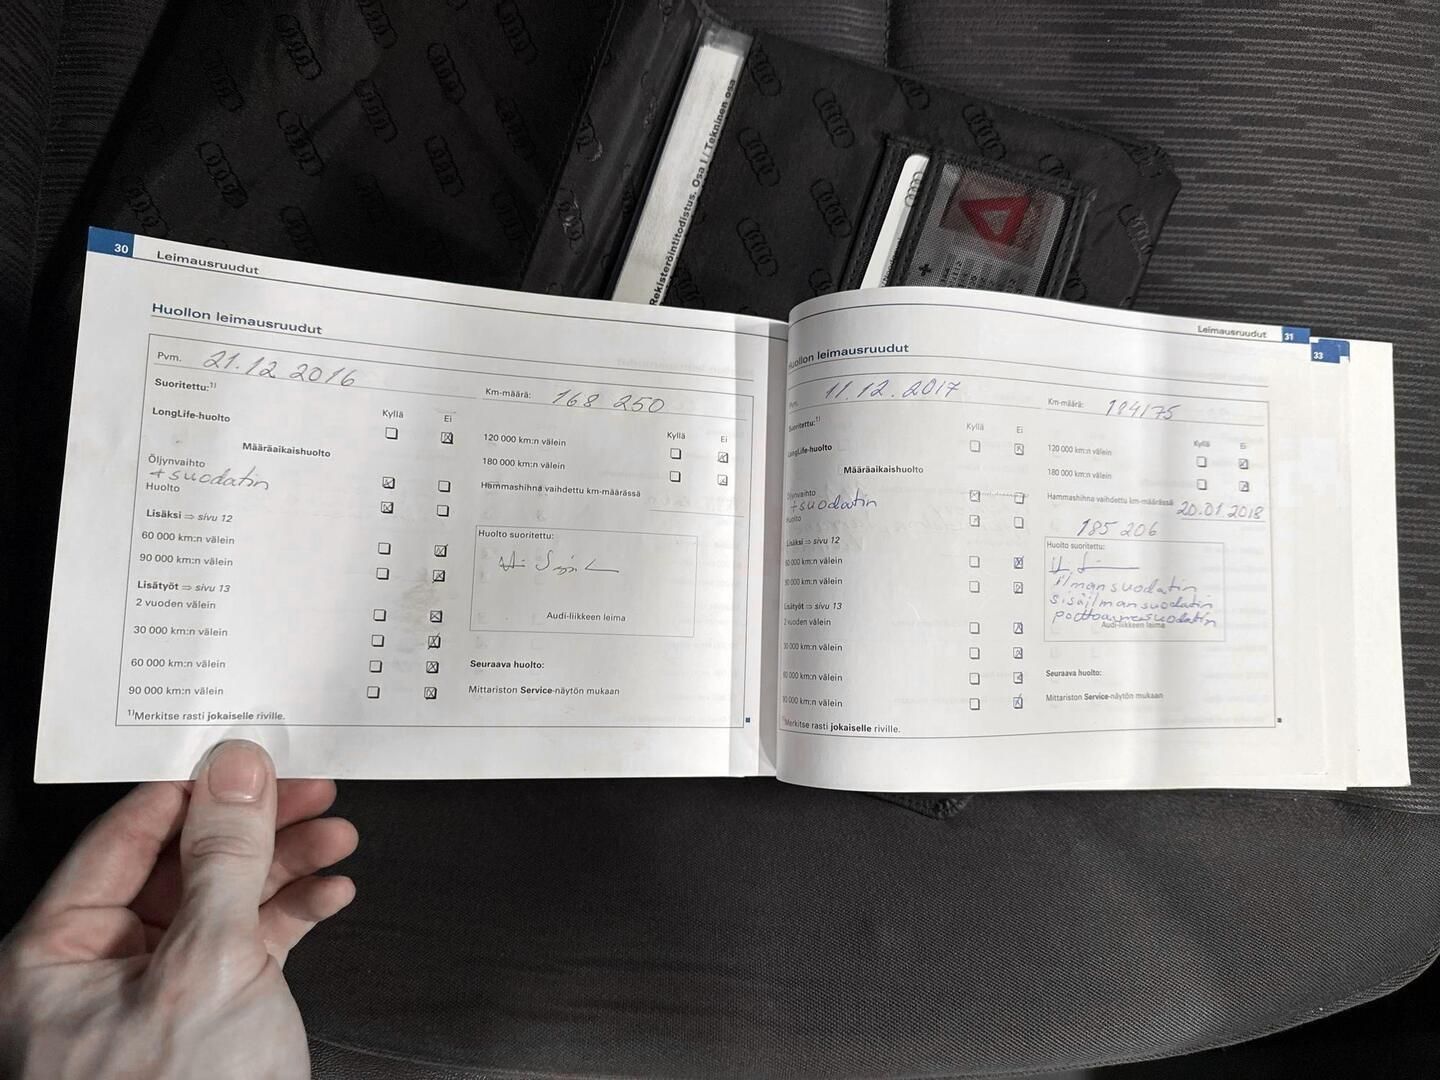 Rekisteröintitodistus. Osa I / Tekninen osa
30
Leimausruudut
Huollon leimausruudut
Pvm. 21.12.2016
Suoritettu:1)
Km-määrä: 168 250
LongLife-huolto
Kyllä Ei
Määräaikaishuolto
Öljynvaihto
+ suodatin
Huolto
Lisäksi ⇒ sivu 12
60 000 km:n välein
90 000 km:n välein
Lisätyöt ⇒ sivu 13
2 vuoden välein
30 000 km:n välein
60 000 km:n välein
90 000 km:n välein
1)Merkitse rasti jokaiselle riville.
Kyllä Ei
120 000 km:n välein
180 000 km:n välein
Hammashihna vaihdettu km-määrässä
Huolto suoritettu:
Audi-liikkeen leima
Seuraava huolto:
Mittariston Service-näytön mukaan
Leimausruudut 31
33
Huollon leimausruudut
Pvm. 11.12.2017
Suoritettu:1)
Km-määrä: 184175
LongLife-huolto
Kyllä Ei
Määräaikaishuolto
Öljynvaihto
+suodatin
Huolto
Lisäksi ⇒ sivu 12
60 000 km:n välein
90 000 km:n välein
Lisätyöt ⇒ sivu 13
2 vuoden välein
30 000 km:n välein
60 000 km:n välein
90 000 km:n välein
Merkitse rasti jokaiselle riville.
Kyllä Ei
120 000 km:n välein
180 000 km:n välein
Hammashihna vaihdettu km-määrässä 20.01.2018
185 206
Huolto suoritettu:
ilmansuodatin
sisäilmansuodatin
polttoainesuodatin
Audi-liikkeen leima
Seuraava huolto:
Mittariston Service-näytön mukaan